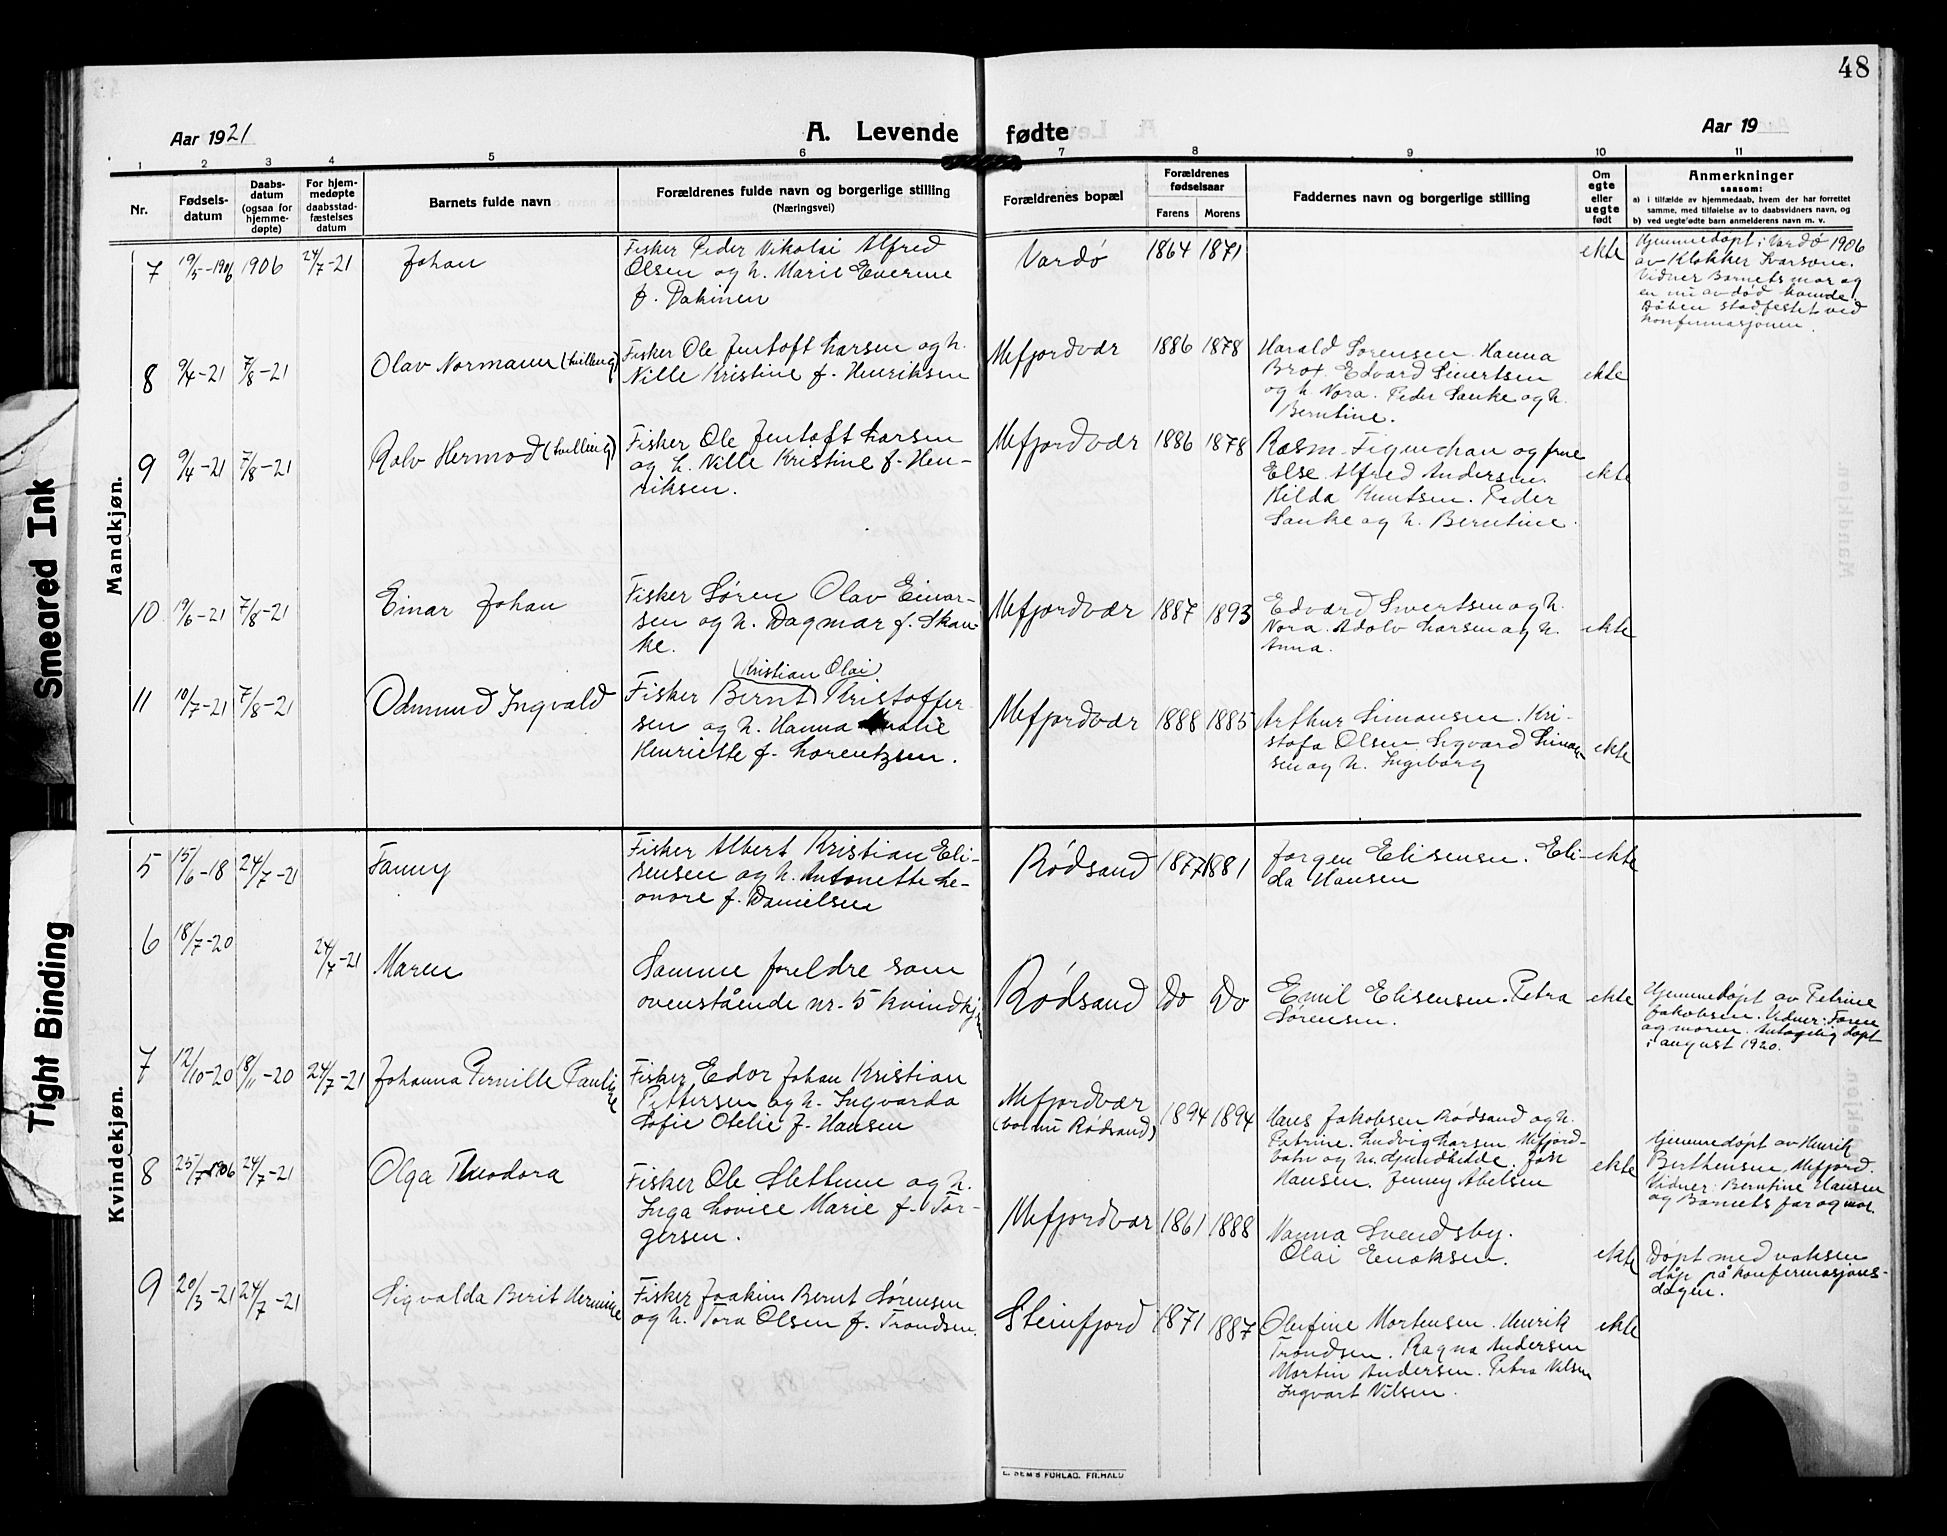 48
Aar 1921
A. Levende fødte
Aar 19
1 2 3 4 5 6 7 8 9 10 11
Nr.
Fødsels-
datum
Daabs-
datum
(ogsaa for
hjemme-
døpte)
For hjem-
medøpte
daabsstad-
fæstelses
datum
Barnets fulde navn
Forældrenes fulde navn og borgerlige stilling
(Næringsvei)
Forældrenes bopæl
Forældrenes
fødselsaar
Farens Morens
Faddernes navn og borgerlige stilling
Om
egte
eller
uegte
født
Anmerkninger
saasom:
a) i tilfælde av hjemmedaab, hvem der har forrettet
samme, med tilføielse av to daabsvidners navn, og
b) ved uegte fødte barn anmelderens navn m. v.
Smeared Ink
Tight Binding
Mandkjøn.
7 19/5-1906 1906 24/7-21
Johan
Fisker Peder Nikolai Alfred
Olsen og h. Marie Everine
f. Dakinen
Vardø
1864 1871
ekte
Hjemmedøpt i Vardø 1906
av Klokker Ivarsøn.
Vidner Barnets mor og
en nu av død kvinde.
Dåben stadfestet ved
konfirmasjonen.
8 9/4-21 7/8-21
Olav Normann (tvilling)
Fisker Ole Jentoft Larsen og h.
Nille Kristine f. Henriksen
Mefjordvær
1886 1878
Harald Sørensen. Hanna
Brox. Edvard Sivertsen
og h. Nora. Peder Sanke og h.
Berntine.
ekte
9 9/4-21 7/8-21
Rolv Hermod (tvilling)
Fisker Ole Jentoft Larsen
og h. Nille Kristine f. Hen-
riksen.
Mefjordvær
1886 1878
Rasm. Figenschau og frue
Else. Alfred Andersen.
Hilda Knutsen. Peder
Sanke og h. Berntine.
ekte
10 19/6-21 7/8-21
Einar Johan
Fisker Søren Olav Einar-
sen og h. Dagmar f. Skan-
ke.
Mefjordvær
1887 1893
Edvard Sivertsen og h.
Nora. Adolv Larsen og h.
Anna.
ekte
11 10/7-21 7/8-21
Odmund Ingvald
(Kristian Olai)
Fisker Bernt Kristoffer
sen og h. Hanna
Henriette f. Lorentzsen.
Mefjordvær
1888 1885
Arthur Simonsen. Kri-
stofa Olsen. Sigvard Simon-
sen og h. Ingeborg
ekte
Kvindekjøn.
5 15/6-18 24/7-21
Fanny
Fisker Albert Kristian Eli-
sensen og h. Antonette Le-
onore f. Danielsen
Rødsand
1877 1881
Jørgen Elisensen. Eli-
da Hansen
ekte
6 18/7-20 24/7-21
Maren
Samme foreldre som
ovenstående nr. 5 kvindkjøn
Rødsand
Do Do
Emil Elisensen. Petra
Sørensen.
ekte
Hjemmedøpt av Petrine
Jakobsen. Vidner: Faren
og moren. Antagelig døpt
i august 1920.
7 12/10-20 18/11-20 24/7-21
Johanna Pernille Pauline
Fisker Edor Johan Kristian
Pettersen og h. Ingvarda
Sofie Otelie f. Hansen
Mefjordvær
(bor nu Rødsand)
1894 1894
Hans Jakobsen Rødsand og h.
Petrine. Ludvig Larsen Mefjord-
botn og h. Gjundhilde.
Hansen. Jenny Abelsen
ekte
Hjemmedøpt av Henrik
Berthensen, Mefjord.
Vidner: Berntine Hansen
og Barnets far og mor.
8 25/7-1906 24/7-21
Olga Theodora
Fisker Ole Slettum og h.
Inga Lovise Marie f. Tor-
gersen.
Mefjordvær
1861 1888
Nanna Svendsby.
Olai Enoksen.
ekte
Døpt med voksen
dåp på konfirmasjons-
dagen.
9 20/3-21 24/7-21
Sigvalda Berit Hermine
Fisker Joakim Bernt Sørensen
og h. Tora Olsen f. Trondsen.
Steinfjord
1871 1887
Olufine Mortensen. Henrik
Trondsen. Ragna Andersen
Martin Andersen. Petra Nilsen
Ingvart Nilsen.
ekte
E. SEM'S FORLAG, FR.HALD